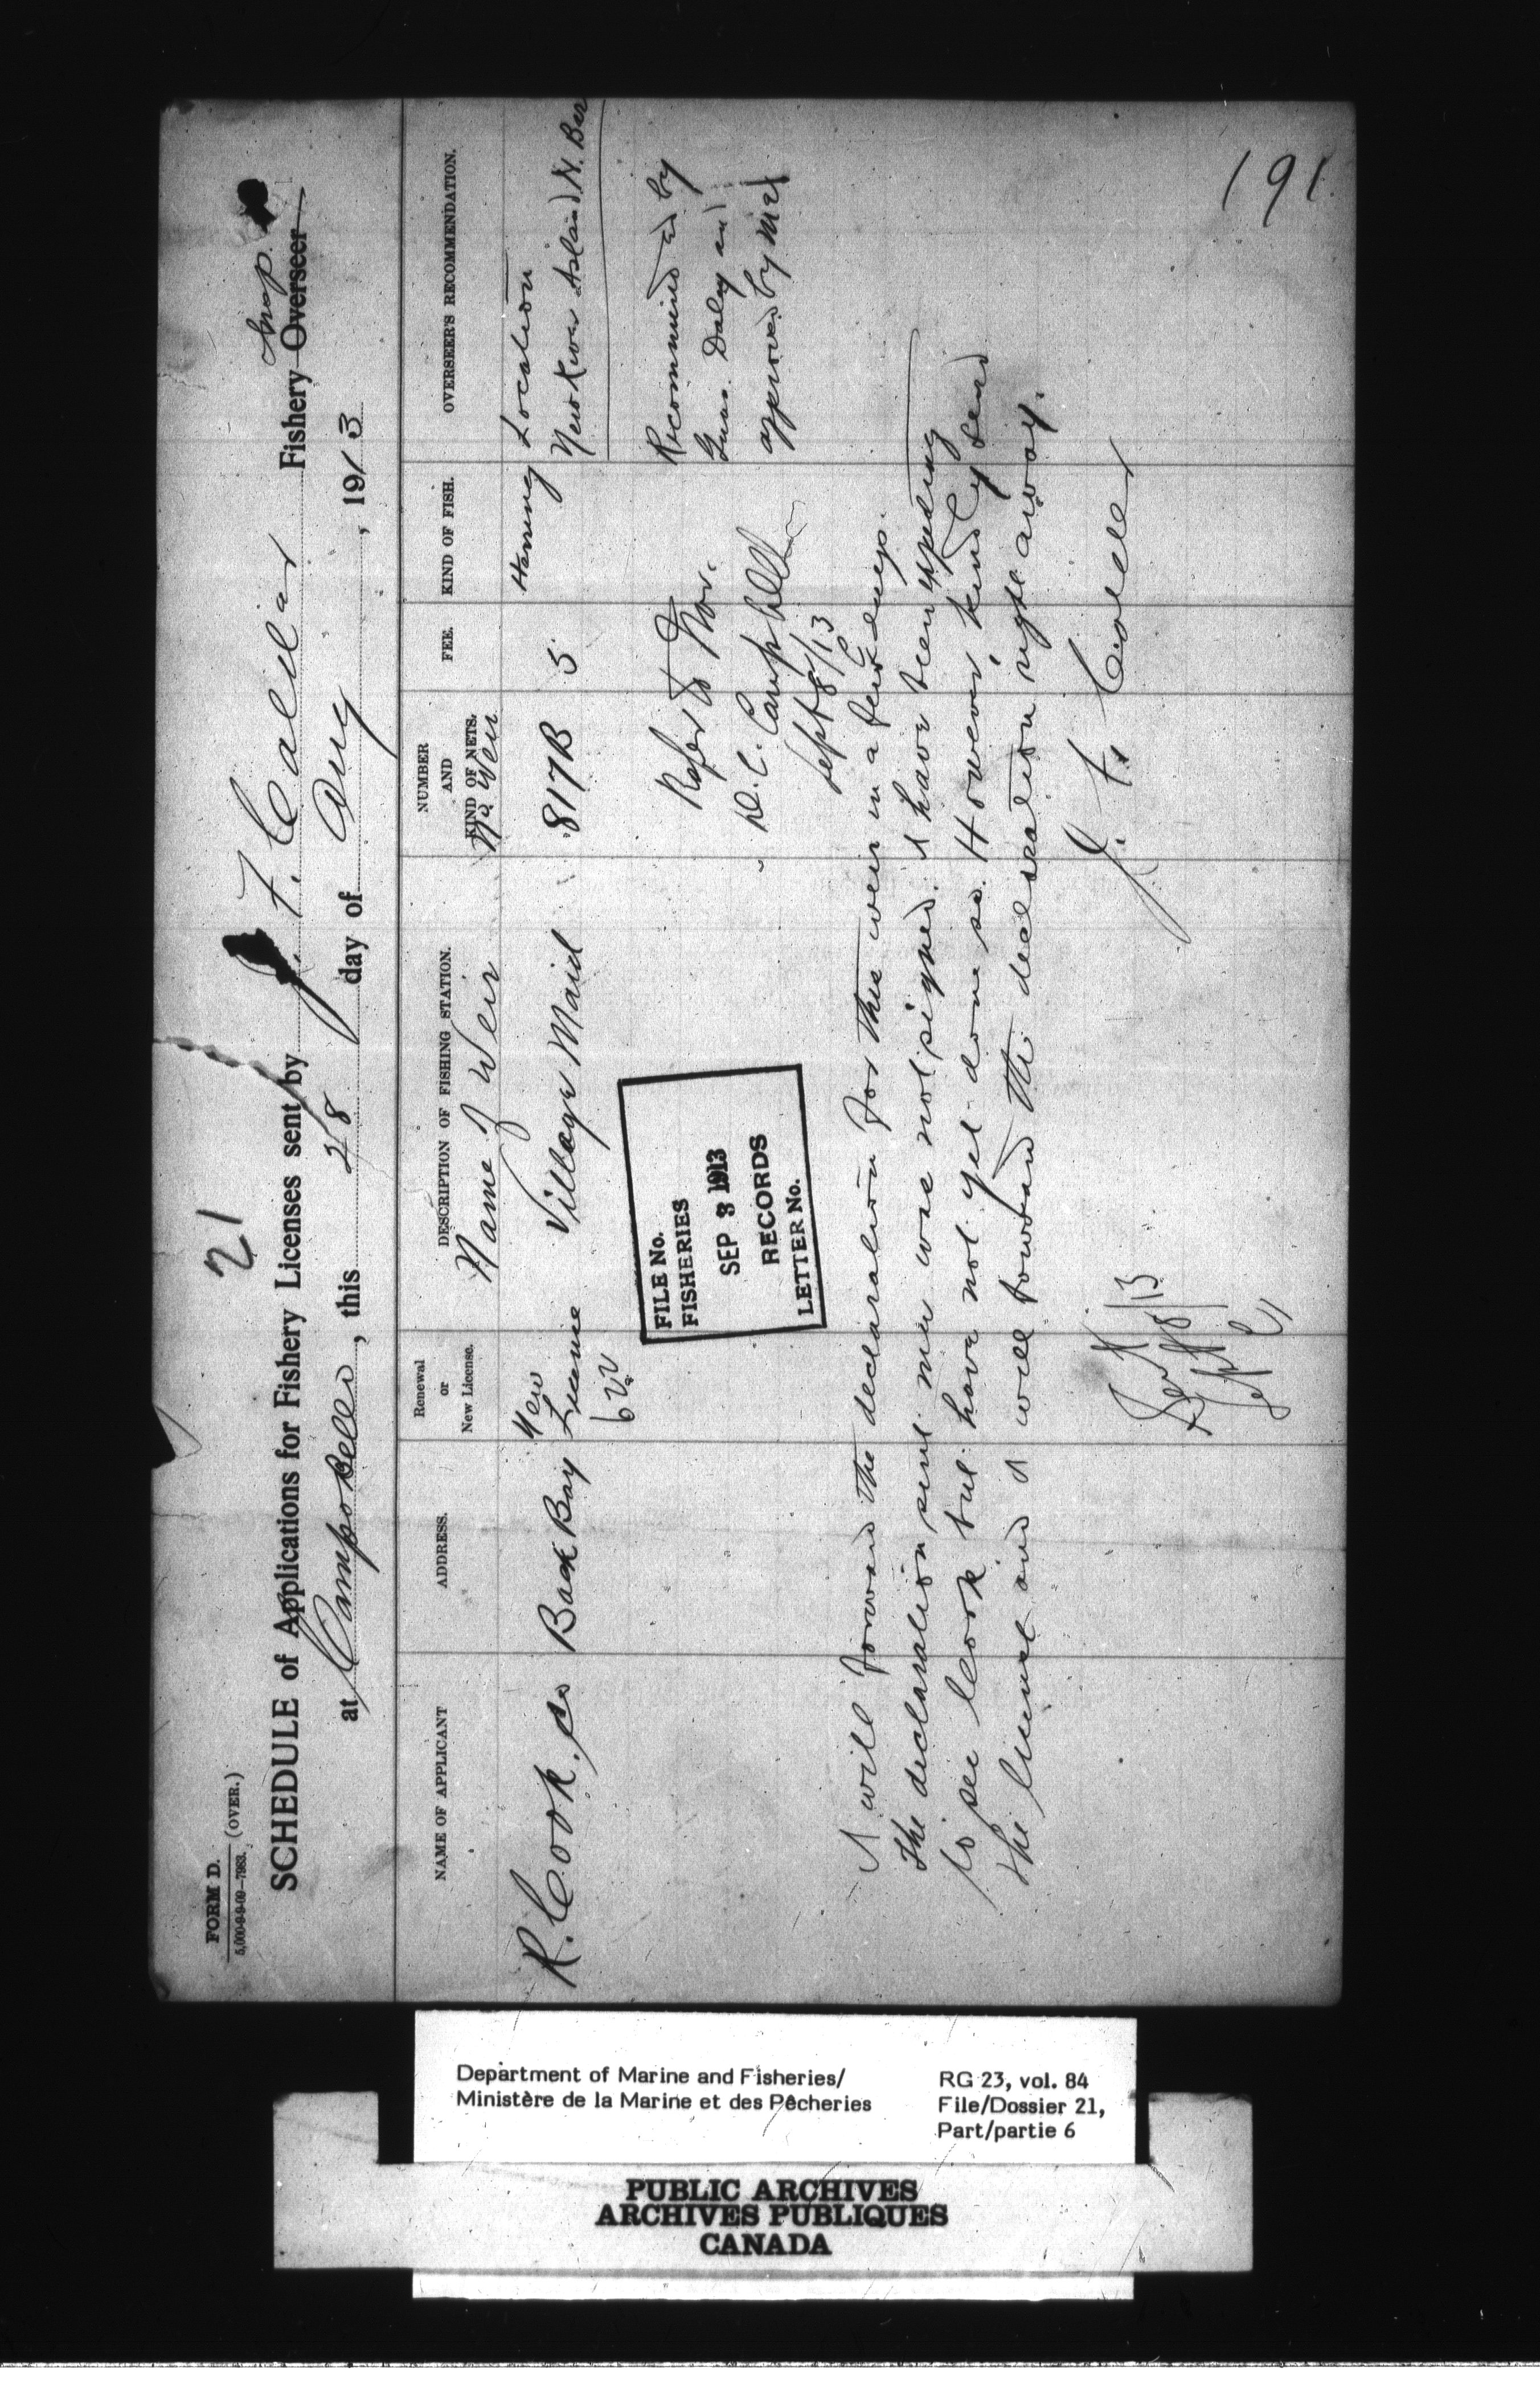 191
21
FORM D.
5,000-9-9-09—7983. (OVER.)
SCHEDULE of Applications for Fishery Licenses sent by J. F. Calder Fishery Overseer Insp.
at Campobello, this 28 day of Aug, 1913
NAME OF APPLICANT
ADDRESS.
Renewal
or
New License.
DESCRIPTION OF FISHING STATION.
NUMBER
AND
KIND OF NETS.
FEE.
KIND OF FISH.
OVERSEER'S RECOMMENDATION.
Name of Weir
No. Weir
R. Cook
Back Bay
New
License
Village Maid
817B
5
Herring
Location
New River Island N. Bar
Recommended by
Guar. Daley and
approved by me
Refer to Mr.
D. C. Campbell
Sept 8/13
FILE No.
FISHERIES
SEP 3 1913
RECORDS
LETTER No.
I will forward the declaration for this weir in a few days.
The declaration sent me was not signed. I have been expecting
to see Cook but have not yet done so. However, kindly send
the license and I will forward the declaration right away.
J. F. Calder
Sept 8/13
Department of Marine and Fisheries/
Ministère de la Marine et des Pêcheries
RG 23, vol. 84
File/Dossier 21,
Part/partie 6
PUBLIC ARCHIVES
ARCHIVES PUBLIQUES
CANADA